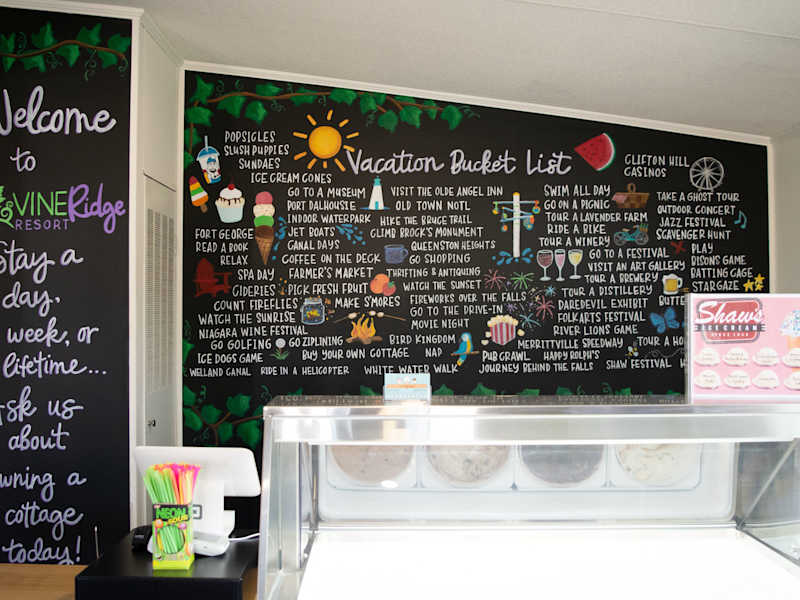 Welcome
to
VINERidge
RESORT
Stay a
day,
week, or
lifetime...
Ask us
about
owning a
cottage
today!
Vacation Bucket List
POPSICLES
SLUSH PUPPIES
SUNDAES
ICE CREAM CONES
GO TO A MUSEUM
PORT DALHOUSIE
INDOOR WATERPARK
JET BOATS
CANAL DAYS
COFFEE ON THE DECK
FORT GEORGE
READ A BOOK
RELAX
SPA DAY
CIDERIES
FARMER'S MARKET
PICK FRESH FRUIT
VISIT THE OLDE ANGEL INN
OLD TOWN NOTL
HIKE THE BRUCE TRAIL
CLIMB BROCK'S MONUMENT
QUEENSTON HEIGHTS
GO SHOPPING
THRIFTING & ANTIQUING
WATCH THE SUNSET
COUNT FIREFLIES
WATCH THE SUNRISE
NIAGARA WINE FESTIVAL
MAKE S'MORES
FIREWORKS OVER THE FALLS
GO TO THE DRIVE-IN
MOVIE NIGHT
GO GOLFING
ZIPLINING
BIRD KINGDOM
ICE DOGS GAME
BUY YOUR OWN COTTAGE
NAP
WELLAND CANAL
RIDE IN A HELICOPTER
WHITE WATER WALK
SWIM ALL DAY
GO ON A PICNIC
TOUR A LAVENDER FARM
RIDE A BIKE
TOUR A WINERY
GO TO A FESTIVAL
VISIT AN ART GALLERY
TOUR A BREWERY
TOUR A DISTILLERY
DAREDEVIL EXHIBIT
FOLKARTS FESTIVAL
RIVER LIONS GAME
MERRITTVILLE SPEEDWAY
PUB CRAWL
HAPPY ROLPH'S
JOURNEY BEHIND THE FALLS
SHAW FESTIVAL
CLIFTON HILL
CASINOS
TAKE A GHOST TOUR
OUTDOOR CONCERT
JAZZ FESTIVAL
SCAVENGER HUNT
PLAY
BISON'S GAME
BATTING CAGE
STARGAZE
TOUR A
Shaw's
ICE CREAM
NEON
SOUR